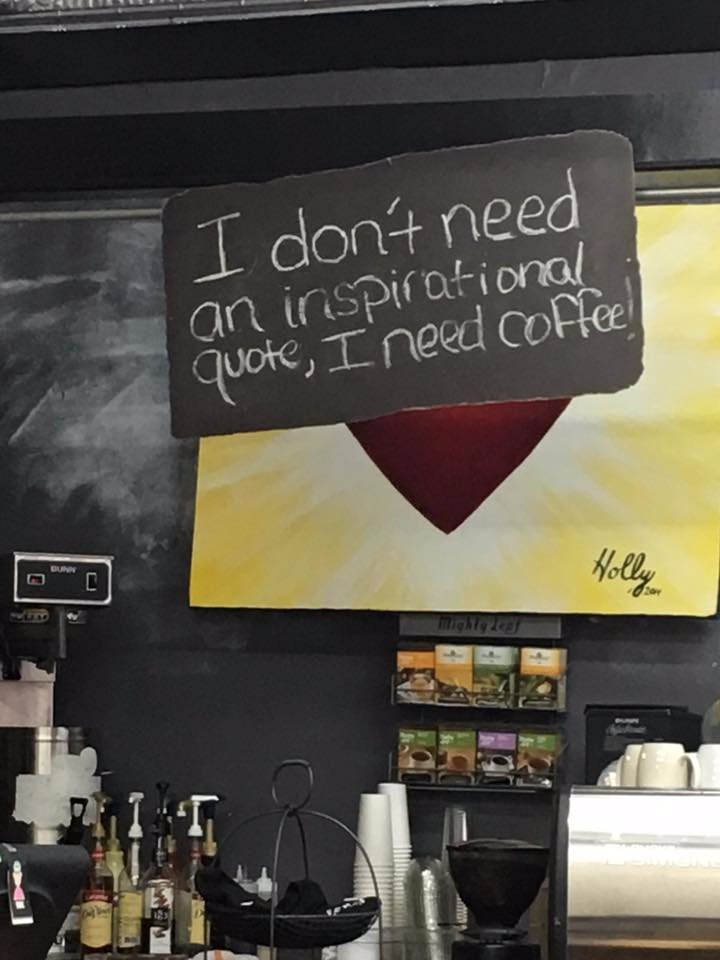 I don't need
an inspirational
quote, I need coffee!
Holly
2014
BUNN
Mighty Leaf
BUNN